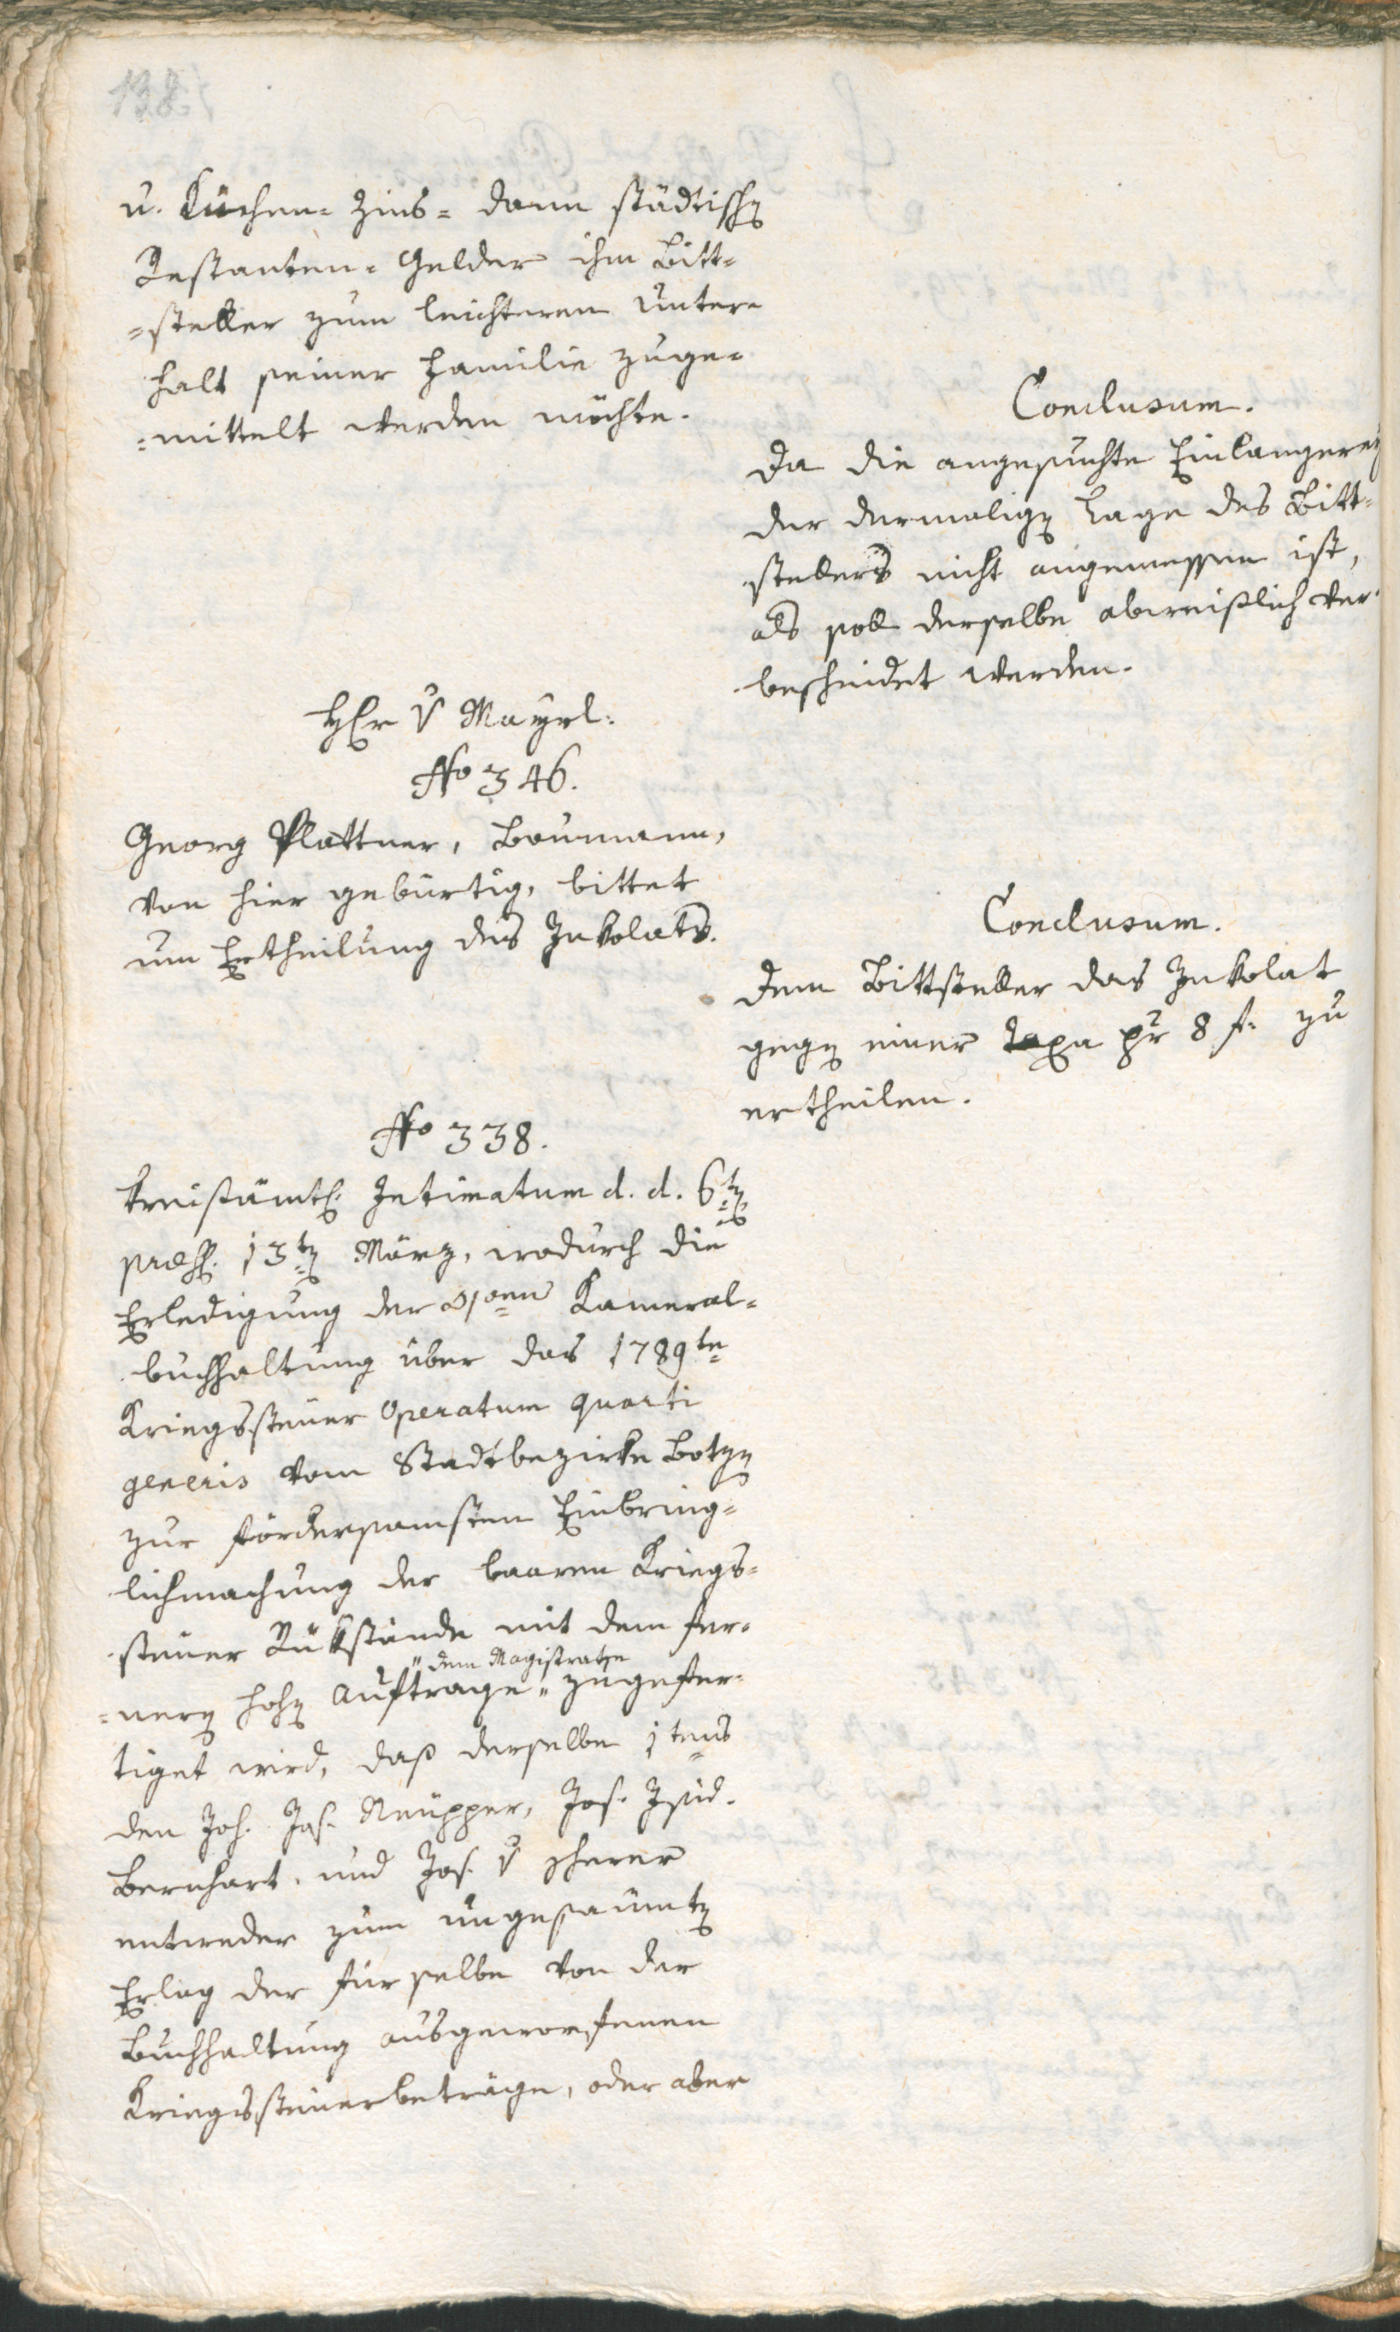 138.
u. Kuchen- Zins- dann städtischen
Restanten-Gelder ihm Bitt-
-steller zum leichteren Unter-
halt seiner Familie zuge-
-mittelt werden möchte.
Conclusum.
Da die angesuchte Einlangerey
der dermaligen Lage des Bitt-
stellers nicht angemessen ist,
als soll derselbe abweißlich ver-
bescheidet werden.
Herr v Mayrl.
No 346.
Georg Plattner, Baumann,
von hier gebürtig, bittet
um Ertheilung des Inkolats.
Conclusum.
Dem Bittsteller das Inkolat
gegen einer Taxa pr 8 f. zu
ertheilen.
No 338.
Kreisämtl. Intimatum d. d. 6ten
præs. 13ten März, wodurch die
Erledigung der Kameral-
buchhaltung über das 1789te
Kriegssteuer Operatum quarti
generis vom Stadtbezirke Botzen
zur fördersamsten Einbring-
lichmachung der baaren Kriegs-
steuer Rükstände mit dem fer-
"dem Magistrate
-neren hohen Auftrage " zugefer-
tiget wird, daß derselbe 1tens
den Joh. Jos. Neupper, Jos. Isid.
Bernhart, und Jos. v Scherer
entweder zum ungesäumten
Erlag der für selbe von der
Buchhaltung ausgeworfenen
Kriegssteuerbeträge, oder aber